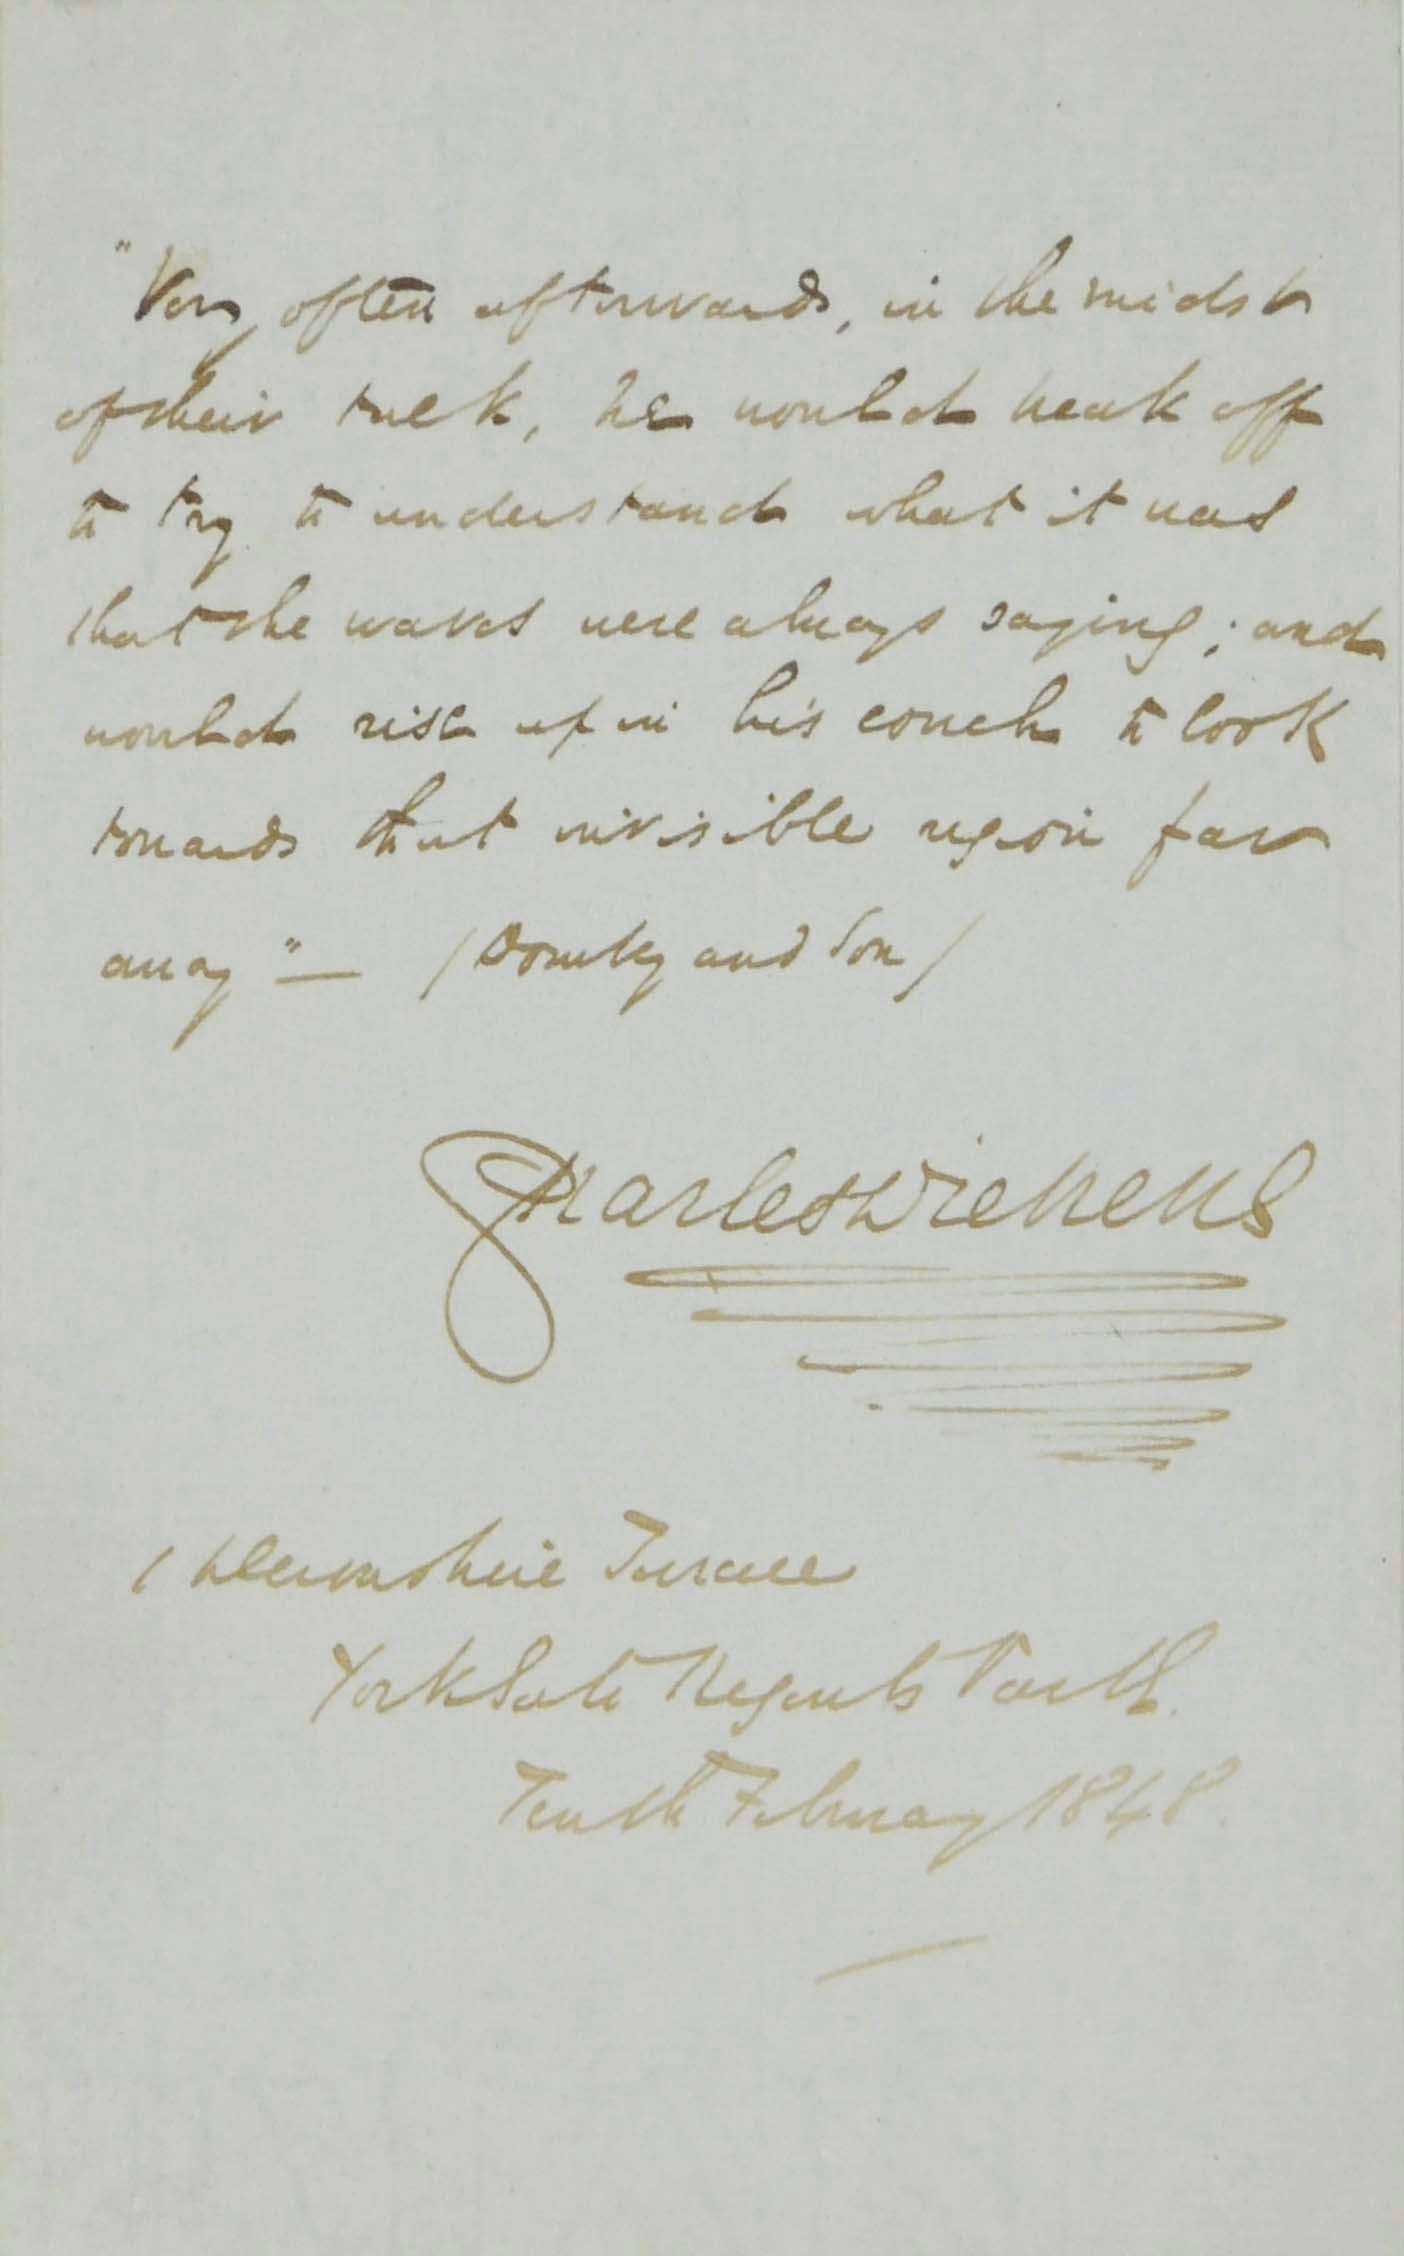 "Very often afterwards, in the midst
of their talk, he would break off
to try to understand what it was
that the waves were always saying; and
would rise up in his couch to look
towards that invisible region far
away" — (Dombey and Son)
Charles Dickens
1 Devonshire Terrace
York Gate Regents Park.
Tenth February 1848.